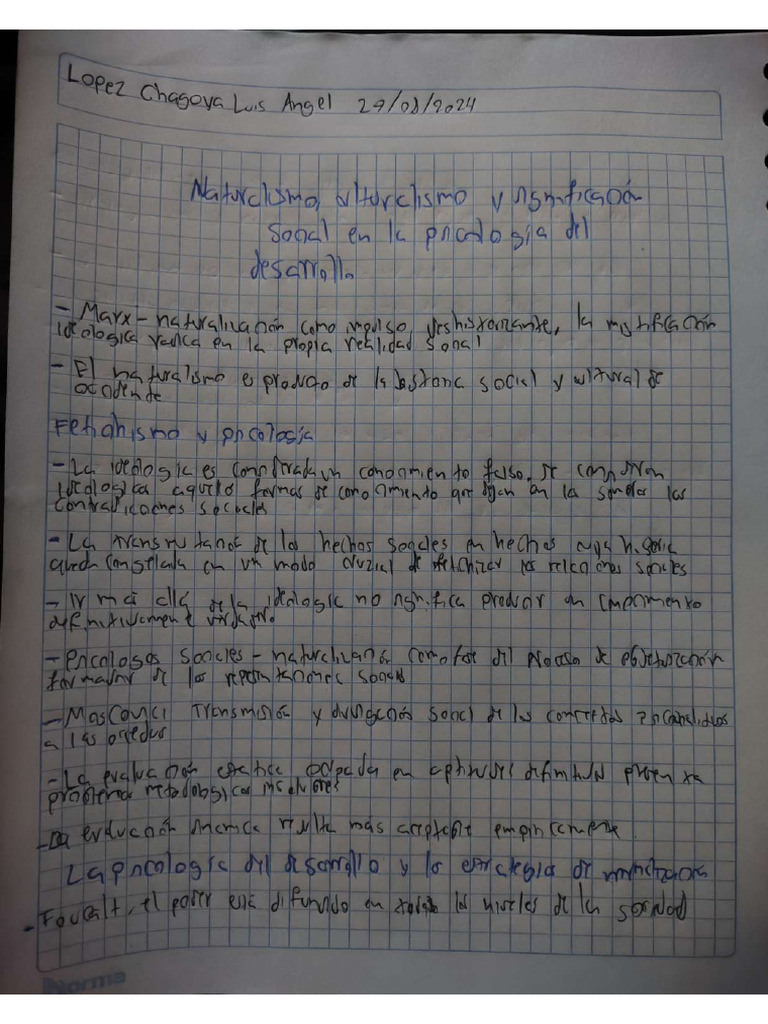 Lopez Chagoya Luis Angel 29/08/2024
Naturalismo, culturalismo y significación
social en la psicología del
desarrollo
- Marx - naturalización como impulso deshistorizante, la mistificación
ideologica radica en la propia realidad social
- El naturalismo es producto de la historia social y cultural de
occidente
Fetichismo y psicología
- La ideologia es considerada un conocimiento falso, se consideran
ideologica aquellas formas de conocimiento que dejan en la sombra las
contradicciones sociales
- La transmutación de los hechos sociales en hechos
queda constelada en un modo cruzial de fetichizar las relaciones sociales
- Ir más allá de la ideología no significa producir un conocimiento
definitivamente verdadero
- Psicologos sociales - naturalización como fase del proceso de objetivización
formador de las representaciones sociales
- Moscovici transmisión y divulgación social de los contenidos
a las
- La evaluación basada en aptitudes presenta
problemas metodologicos
- La evaluación resulta más aceptable empiricamente.
La psicologia del desarrollo y la estrategia de
- Foucalt, el poder está difundido en todos los niveles de la sociedad
Norma